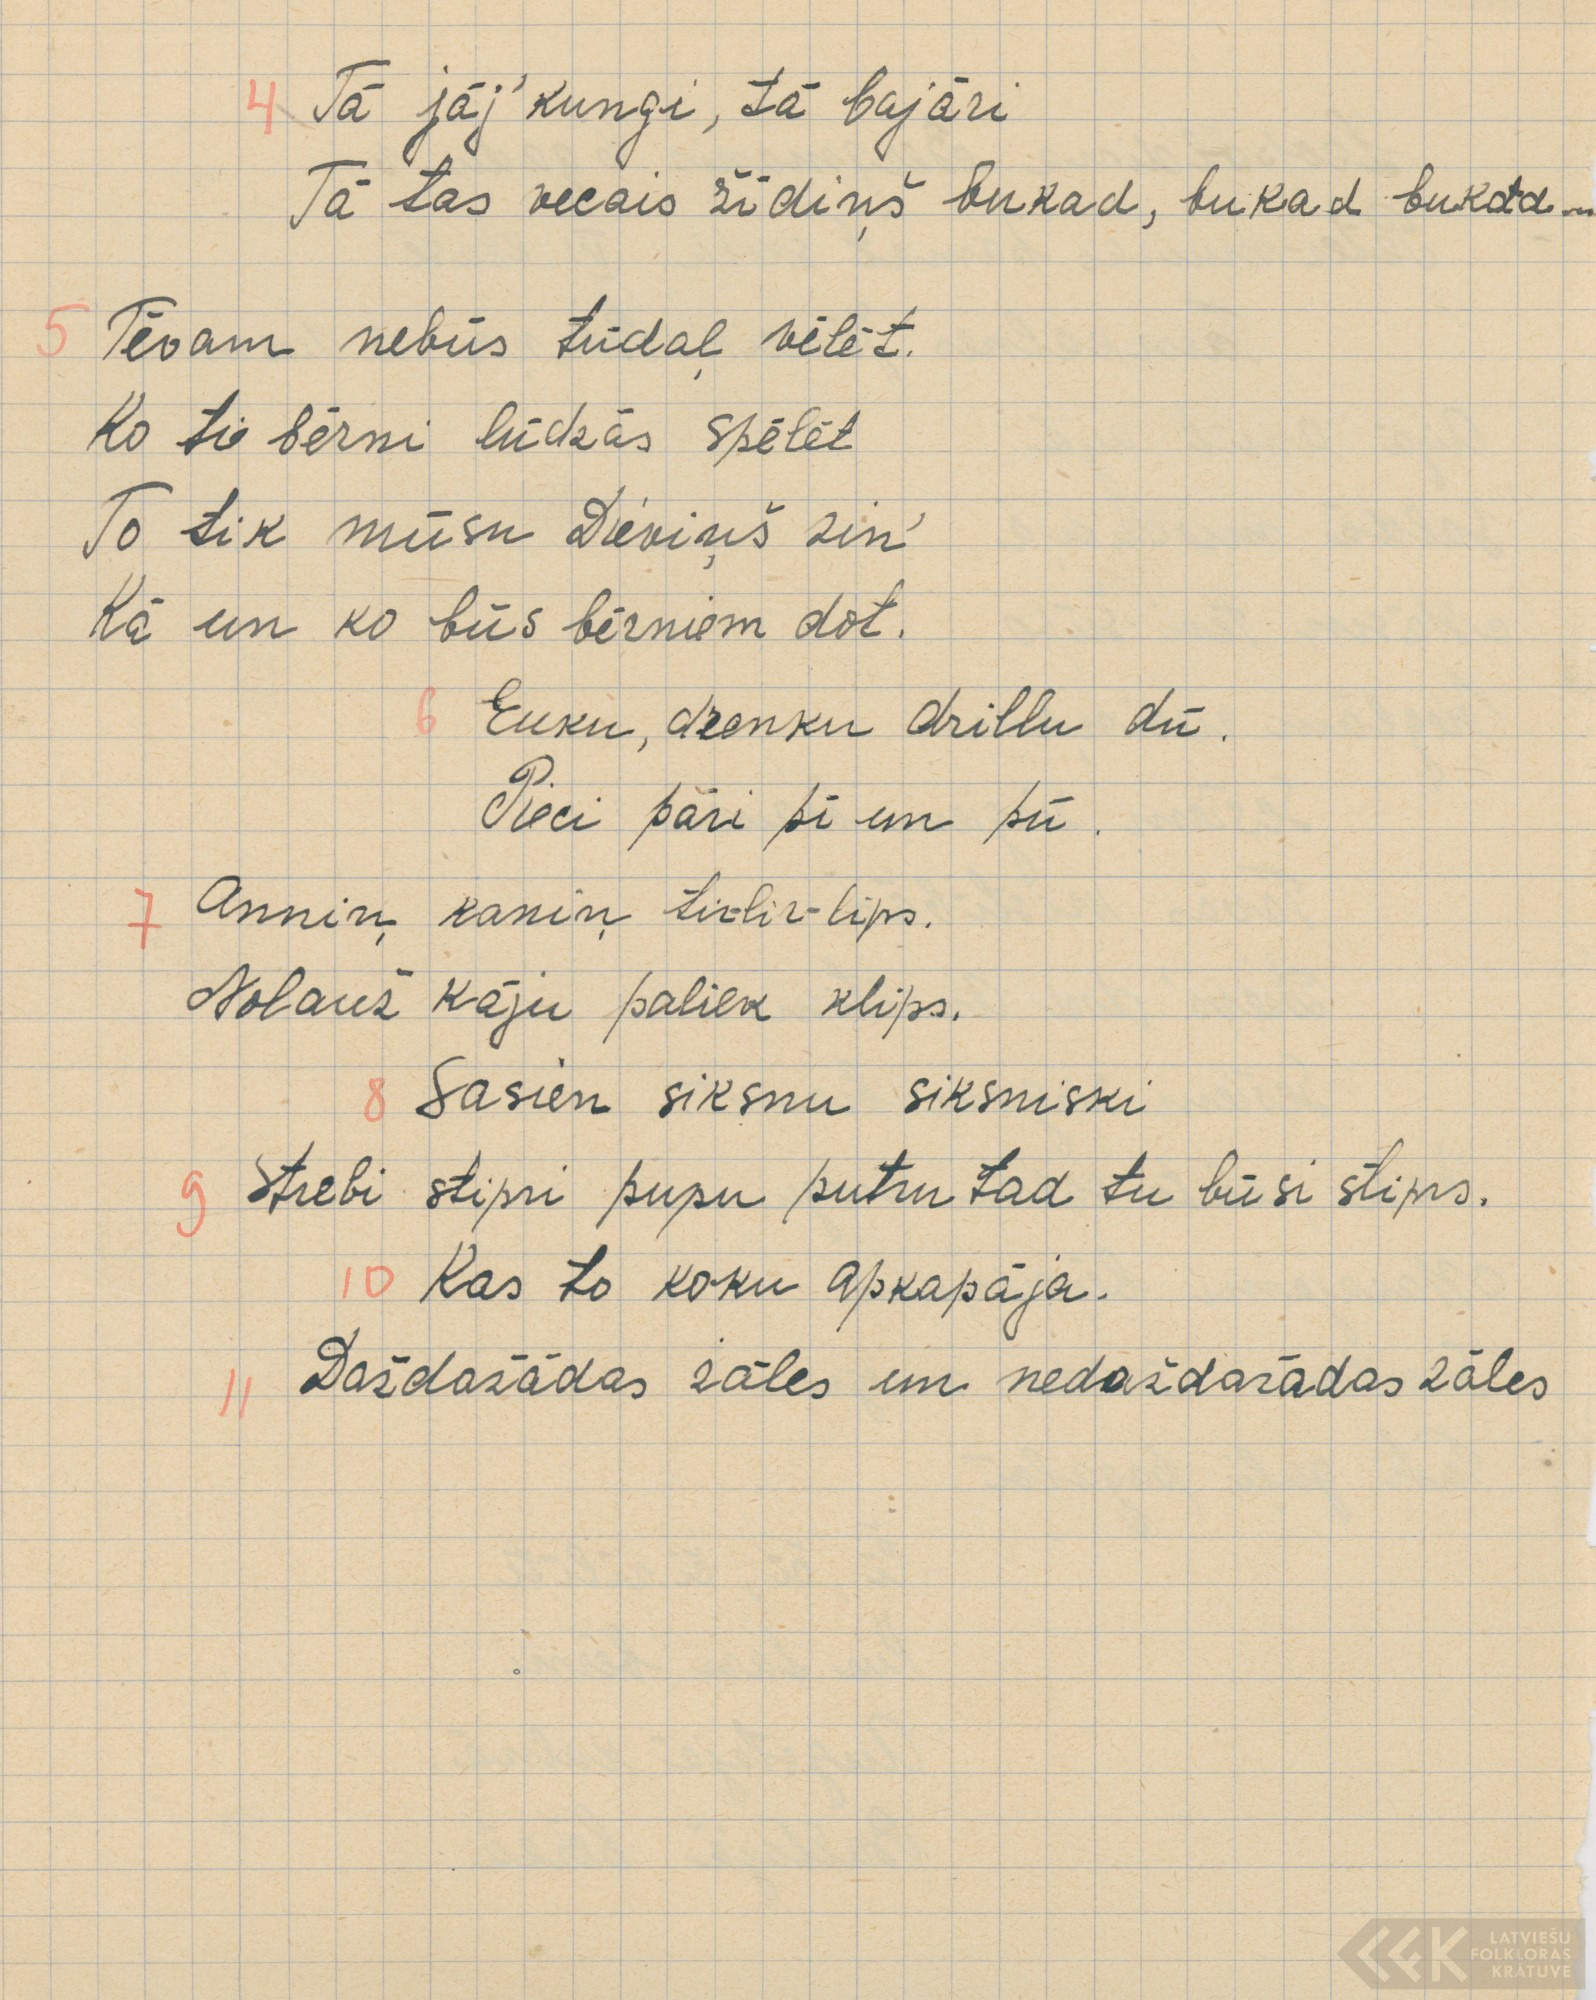 4 Tā jāj' kungi, tā bajāri
Tā tas vecais žīdiņš bukad, bukad bukad
5 Tēvam nebūs tūdaļ vēlēt.
Ko tie bērni lūdzās spēlēt
To tik mūsu Dieviņš zin'
Kā un ko būs bērniem dot.
6 Euku, drenku drillu dū.
Pieci pāri pī un pū.
7 Anniņ kaniņ tir-lir-lips.
Nolauž kāju paliek klips.
8 Sasien siksnu siksniski
9 Strebi stipri pupu putru tad tu būsi stiprs.
10 Kas to koku apkapāja.
11 Daždažādas zāles un nedaždažādas zāles
LATVIEŠU
FOLKLORAS
KRĀTUVE